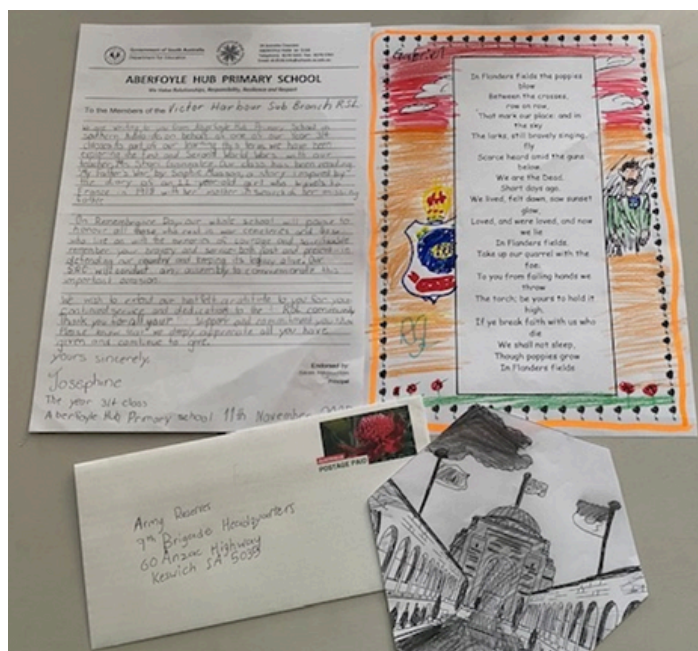 Government of South Australia
Department for Education
ABERFOYLE HUB PRIMARY SCHOOL
We Value Relationships, Responsibility, Resilience and Respect
To the Members of the Victor Harbour Sub Branch RSL
We are writing to you from Aberfoyle Hub Primary School in
southern Adelaide on behalf of one of our Year 3/4
classes. As part of our learning this term we have been
exploring the First and Second World Wars with our
teacher, Ms Our class has been reading
'My Father's War' by Sophie Masson, a story inspired by
the diary of an 11 year old girl who travels to
France in 1918 with her mother in search of her missing
father.
On Remembrance Day our whole school will pause to
honour all those who rest in war cemeteries and those
who live on with the memories of courage and sacrifice
remember your bravery and service both past and present in
defending our country and keeping its legacy alive. Our
SRC will conduct an assembly to commemorate this
important occasion.
We wish to extend our heartfelt gratitude to you for your
continued service and dedication to the RSL community
thank you for all your support and commitment you show
Please know that we deeply appreciate all you have
given and continue to give.
yours sincerely,
Josephine
Endorsed by
Principal
The year 3/4 class
Aberfoyle Hub Primary school 11th November
Gabriel
In Flanders fields the poppies
blow
Between the crosses,
row on row,
That mark our place: and in
the sky
The larks, still bravely singing,
fly
Scarce heard amid the guns
below.
We are the Dead.
Short days ago,
We lived, felt dawn, saw sunset
glow,
Loved, and were loved, and now
we lie
In Flanders fields.
Take up our quarrel with the
foe;
To you from failing hands we
throw
The torch; be yours to hold it
high.
If ye break faith with us who
die
We shall not sleep,
Though poppies grow
In Flanders fields
RG
AUSTRALIA
POSTAGE PAID
Army Reserves
9th Brigade Headquarters
60 Anzac Highway
Keswich SA 5035